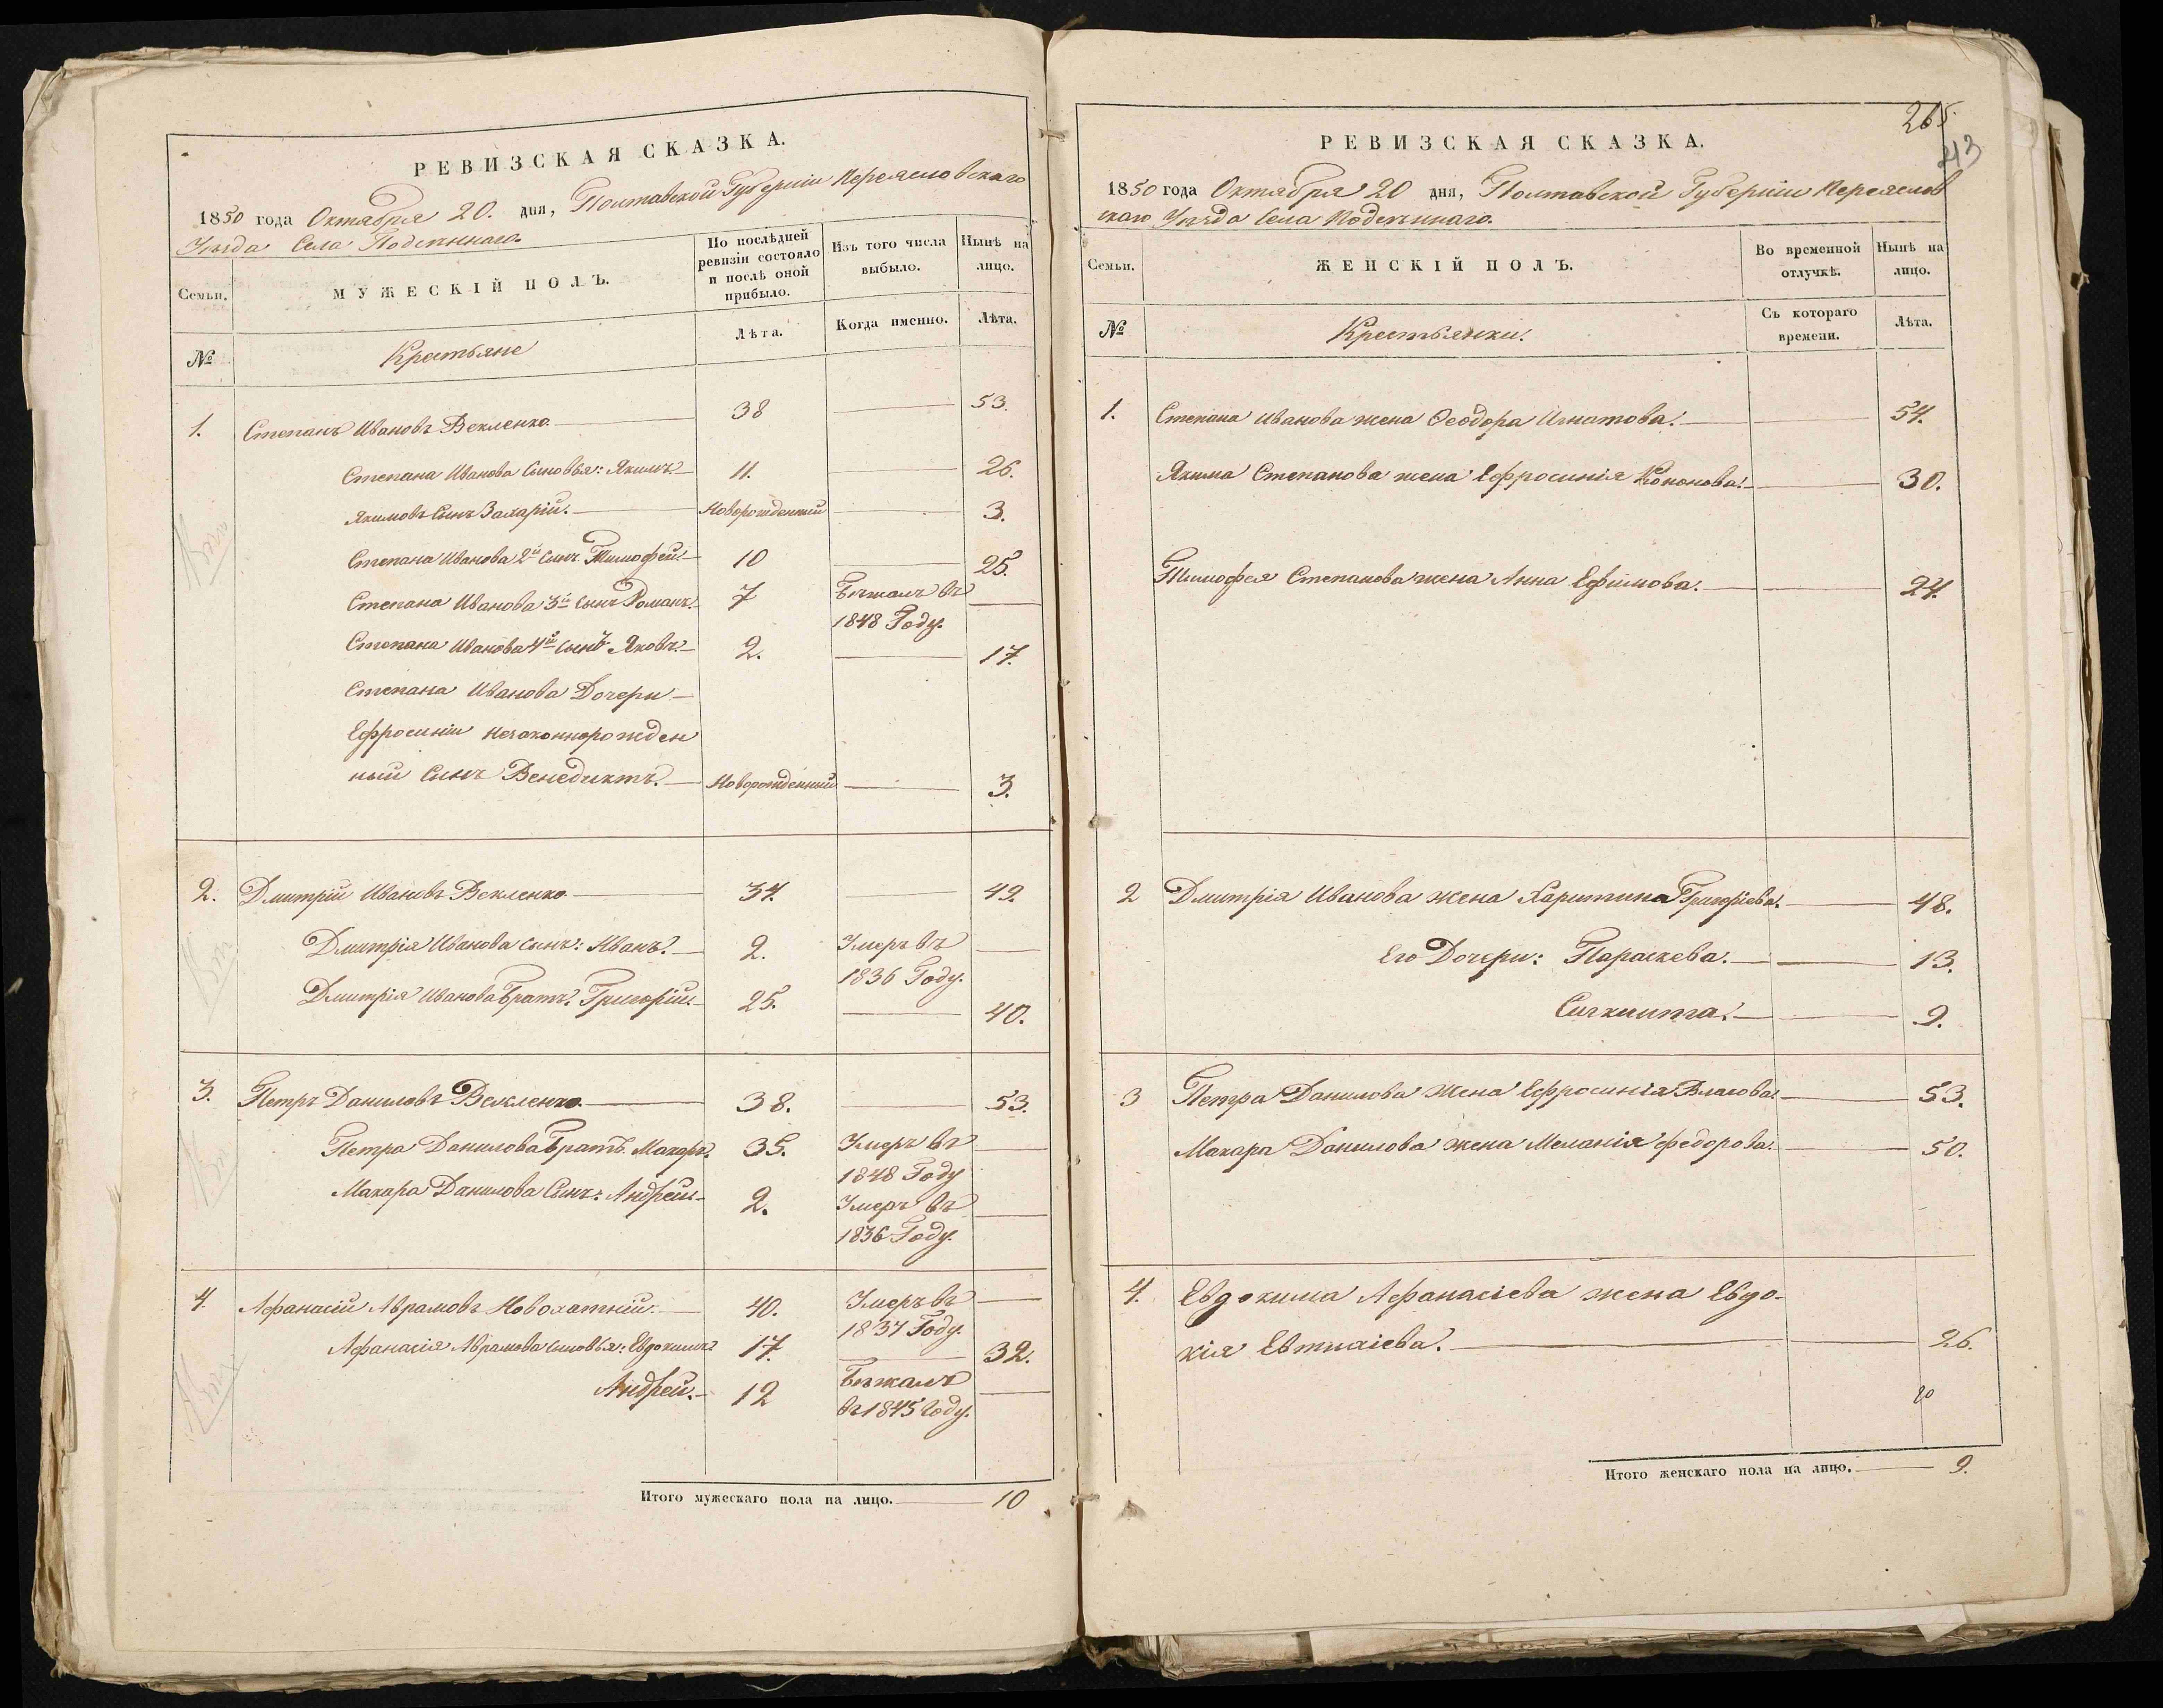 РЕВИЗСКАЯ СКАЗКА.
1850 года Октября 20. дня, Полтавской Губерніи Переясловскаго
Уѣзда Села Подсѣннаго.
Семьи.
МУЖЕСКІЙ ПОЛЪ.
По послѣдней
ревизіи состояло
и послѣ оной
прибыло.
Изъ того числа
выбыло.
Нынѣ на
лицо.
№
Крестьяне
Лѣта.
Когда именно.
Лѣта.
1. Степанъ Ивановъ Векленко 38 53.
Степана Иванова Сыновья: Якимъ. 11. 26.
Якимовъ Сынъ Захарій. Новорожденный 3.
Степана Иванова 2й Сынъ Тимофей. 10 25.
Степана Иванова 3й Сынъ Романъ. 7 Бѣжалъ въ
1848 Году.
Степана Иванова 4й Сынъ Яковъ. 2. 17.
Степана Иванова Дочери
Ефросиніи незаконнорожден
ный Сынъ Венедиктъ. Новорожденный 3.
2. Дмитрій Ивановъ Векленко 34. 49.
Дмитрія Иванова Сынъ: Иванъ. 2. Умеръ въ
1836 Году.
Дмитрія Иванова Братъ: Григорій. 25. 40.
3. Петръ Даниловъ Векленко. 38. 53.
Петра Данилова Братъ. Макаръ. 35. Умеръ въ
1848 Году
Макара Данилова Сынъ: Андрей. 2. Умеръ въ
1836 Году.
4. Афанасій Аврамовъ Новохатній. 40. Умеръ въ
1837 Году.
Афанасія Аврамова сыновья: Евдокимъ 17. 32.
Андрей. 12 Бѣжалъ
въ 1845 Году.
Итого мужескаго пола на лицо. 10
265.
43
РЕВИЗСКАЯ СКАЗКА.
1850 года Октября 20 дня, Полтавской Губерніи Переяслов
скаго Уѣзда Села Подсѣннаго.
Семьи.
ЖЕНСКІЙ ПОЛЪ.
Во временной
отлучкѣ.
Нынѣ на
лицо.
№
Крестьянки.
Съ котораго
времени.
Лѣта.
1. Степана Иванова жена Ѳеодора Игнатова. 54.
Якима Степанова жена Ефросинія Кононова. 30.
Тимофея Степанова жена Анна Ефимова. 24.
2 Дмитрія Иванова жена Харитина Григорієва. 48.
Его Дочери: Параскева. 13.
9.
3 Петра Данилова Жена Ефросинія Власова. 53.
Макара Данилова жена Меланія Федорова. 50.
4. Евдокима Афанасіева жена Евдо-
кія 26.
Итого женскаго пола на лицо. 9.